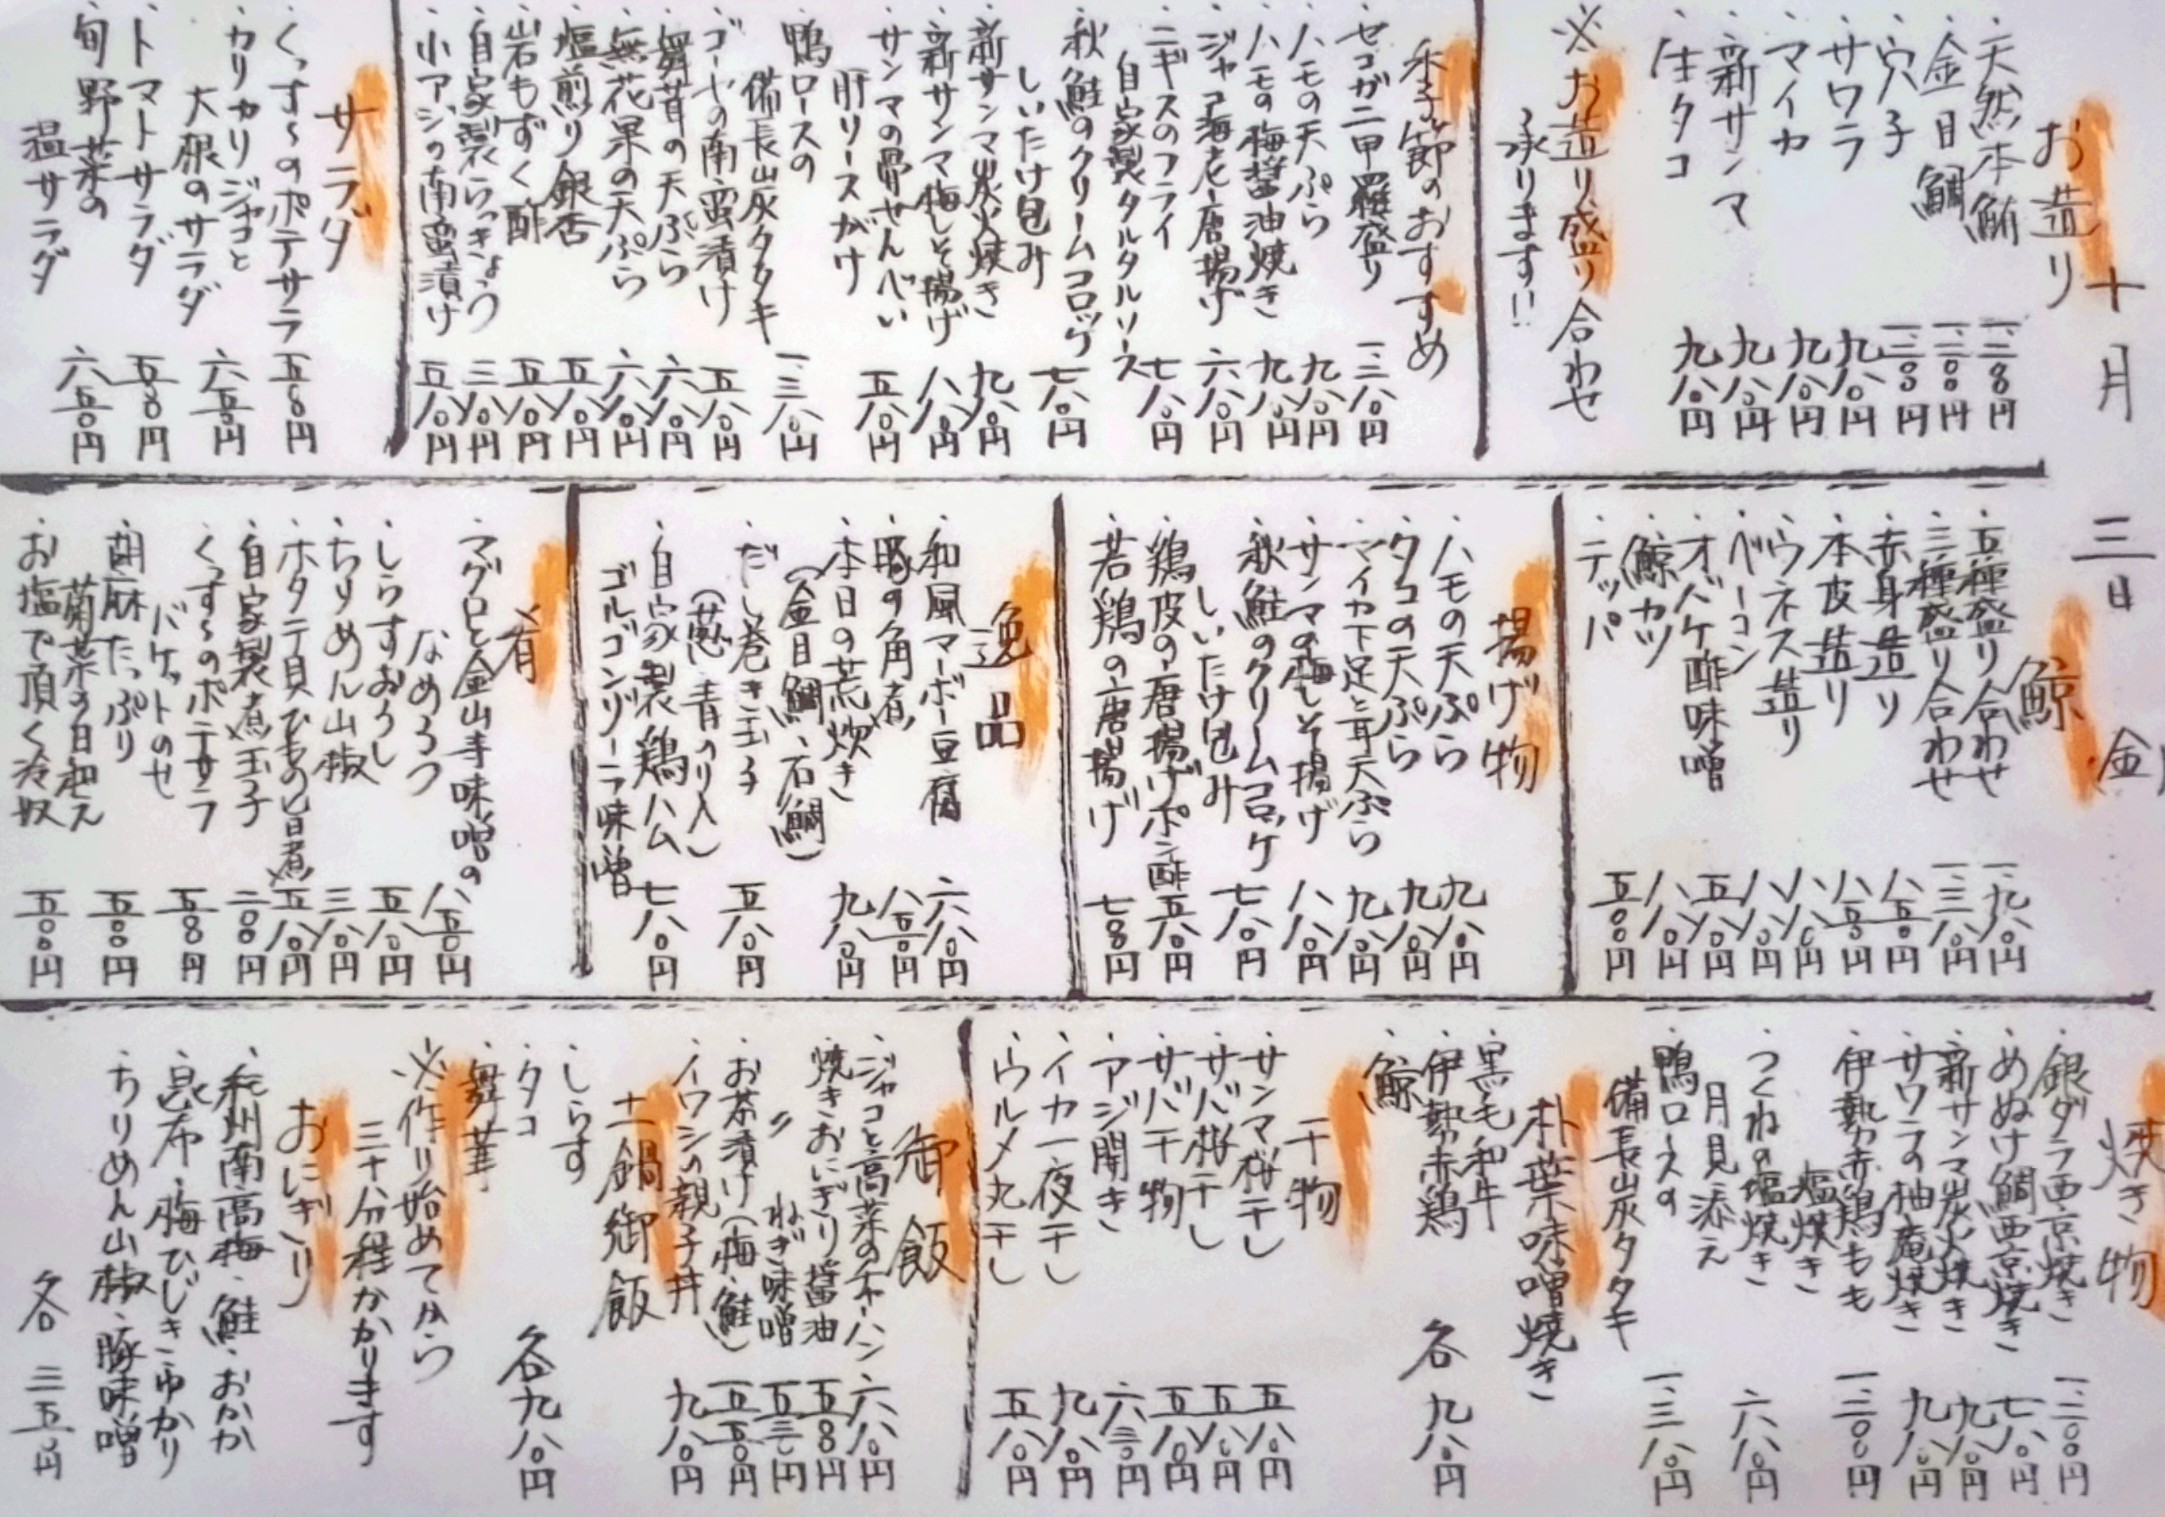 十月三日 金
お造り
・天然本鮪 一、二〇〇円
・金目鯛 一、二〇〇円
・穴子 一、二〇〇円
・サワラ 九八〇円
・マイカ 九八〇円
・新サンマ 九八〇円
・生タコ 九八〇円
※お造り盛り合わせ
承ります!!
季節のおすすめ
・セコガニ甲羅盛り 一、三八〇円
・ハモの天ぷら 九八〇円
・ハモの梅醤油焼き 九八〇円
・ジャコ海老唐揚げ 六八〇円
・ニギスのフライ
自家製タルタルソース 七八〇円
・秋鮭のクリームコロッケ
しいたけ包み 七八〇円
・新サンマ炭火焼き 九八〇円
・新サンマ梅しそ揚げ 八八〇円
・サンマの骨せんべい
肝リースがけ 五八〇円
・鴨ロースの
備長炭タタキ 一、三八〇円
・ゴーヤの南蛮漬け 五八〇円
・舞茸の天ぷら 六八〇円
・無花果の天ぷら 六八〇円
・塩煎り銀杏 五八〇円
・岩もずく酢 五八〇円
・自家製らっきょう 三八〇円
・小アジの南蛮漬け 五八〇円
サラダ
・くっす〜のポテサラ 五〇〇円
・カリカリジャコと
大根のサラダ 六五〇円
・トマトサラダ 五〇〇円
・旬野菜の
温サラダ 六五〇円
鯨
・五種盛り合わせ 一、九八〇円
・三種盛り合わせ 一、三八〇円
・赤身造り 八五〇円
・本皮造り 八五〇円
・ウネス造り 八八〇円
・ベーコン 八八〇円
・オバケ酢味噌 五八〇円
・鯨カツ 八八〇円
・テッパ 五〇〇円
揚げ物
・ハモの天ぷら 九八〇円
・タコの天ぷら 九八〇円
・マイカ下足と耳天ぷら 九八〇円
・サンマの梅しそ揚げ 八八〇円
・秋鮭のクリームコロッケ
しいたけ包み 七八〇円
・鶏皮の唐揚げポン酢 五八〇円
・若鶏の唐揚げ 七〇〇円
逸品
・和風マーボー豆腐 六八〇円
・豚の角煮 八五〇円
・本日の荒炊き
(金目鯛、石鯛) 九八〇円
・だし巻き玉子
(葱、青のり入) 五八〇円
・自家製鶏ハム
ゴルゴンゾーラ味噌 七八〇円
肴
・マグロと金山寺味噌の
なめろう 八五〇円
・しらすおろし 五八〇円
・ちりめん山椒 三八〇円
・ホタテ貝ひもの旨煮 五八〇円
・自家製煮玉子 二〇〇円
・くっす〜のポテサラ
バケットのせ 五〇〇円
・胡麻たっぷり
菊菜の白和え 五〇〇円
・お塩で頂く冷奴 五〇〇円
焼き物
・銀ダラ西京焼き 一、二〇〇円
・めぬけ鯛西京焼き 七八〇円
・新サンマ炭火焼き 九八〇円
・サワラの柚庵焼き 九八〇円
・伊勢赤鶏もも
塩焼き 一、二〇〇円
・つくねの塩焼き
月見添え 六八〇円
・鴨ロースの
備長炭タタキ 一、三八〇円
朴葉味噌焼き
・黒毛和牛
・伊勢赤鶏
・鯨
各 九八〇円
干物
・サンマ桜干し 五八〇円
・サバ桜干し 五八〇円
・サバ干物 五八〇円
・アジ開き 六三〇円
・イカ一夜干し 九八〇円
・ウルメ丸干し 五八〇円
御飯
・ジャコと高菜のチャーハン 六八〇円
・焼きおにぎり醤油 五〇〇円
〃 ねぎ味噌 五三〇円
・お茶漬け(梅、鮭) 五五〇円
・イワシの親子丼 九八〇円
土鍋御飯
・しらす
・タコ
・舞茸
各九八〇円
※作り始めてから
三十分程かかります
おにぎり
・紀州南高梅・鮭・おかか
・昆布・梅ひじき・ゆかり
・ちりめん山椒・豚味噌
各 三五〇円